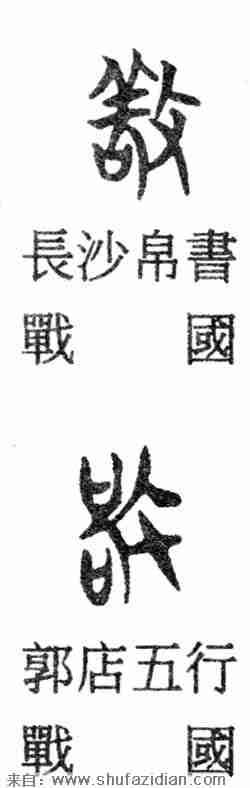 長沙帛書
戰國
郭店五行
戰國
来自：www.shufazidian.com